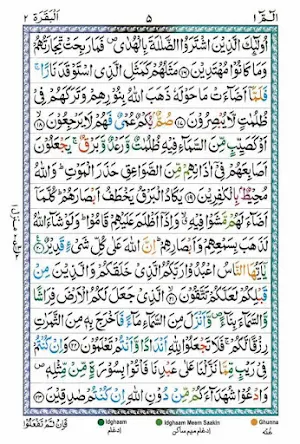 الٓمّٓ ١ ٥ اَلْبَقَرَة ٢
اُولٰٓئِكَ الَّذِيْنَ اشْتَرَوُا الضَّلٰلَةَ بِالْهُدٰى فَمَا رَبِحَتْ تِّجَارَتُهُمْ
وَمَا كَانُوْا مُهْتَدِيْنَ ١٦ مَثَلُهُمْ كَمَثَلِ الَّذِى اسْتَوْقَدَ نَارًا
فَلَمَّآ اَضَآءَتْ مَا حَوْلَهٗ ذَهَبَ اللّٰهُ بِنُوْرِهِمْ وَتَرَكَهُمْ فِىْ
ظُلُمٰتٍ لَّا يُبْصِرُوْنَ ١٧ صُمٌّۢ بُكْمٌ عُمْىٌ فَهُمْ لَا يَرْجِعُوْنَ ١٨
اَوْ كَصَيِّبٍ مِّنَ السَّمَآءِ فِيْهِ ظُلُمٰتٌ وَّرَعْدٌ وَّبَرْقٌ يَجْعَلُوْنَ
اَصَابِعَهُمْ فِىْٓ اٰذَانِهِمْ مِّنَ الصَّوَاعِقِ حَذَرَ الْمَوْتِ وَاللّٰهُ
مُحِيْطٌۢ بِالْكٰفِرِيْنَ ١٩ يَكَادُ الْبَرْقُ يَخْطَفُ اَبْصَارَهُمْ كُلَّمَآ
اَضَآءَ لَهُمْ مَّشَوْا فِيْهِ وَاِذَآ اَظْلَمَ عَلَيْهِمْ قَامُوْا وَلَوْ شَآءَ اللّٰهُ
لَذَهَبَ بِسَمْعِهِمْ وَاَبْصَارِهِمْ اِنَّ اللّٰهَ عَلٰى كُلِّ شَىْءٍ قَدِيْرٌ ٢٠
يٰٓاَيُّهَا النَّاسُ اعْبُدُوْا رَبَّكُمُ الَّذِىْ خَلَقَكُمْ وَالَّذِيْنَ مِنْ
قَبْلِكُمْ لَعَلَّكُمْ تَتَّقُوْنَ ٢١ الَّذِىْ جَعَلَ لَكُمُ الْاَرْضَ فِرَاشًا
وَّالسَّمَآءَ بِنَآءً وَّاَنْزَلَ مِنَ السَّمَآءِ مَآءً فَاَخْرَجَ بِهٖ مِنَ الثَّمَرٰتِ
رِزْقًا لَّكُمْ فَلَا تَجْعَلُوْا لِلّٰهِ اَنْدَادًا وَّاَنْتُمْ تَعْلَمُوْنَ ٢٢ وَاِنْ كُنْتُمْ
فِىْ رَيْبٍ مِّمَّا نَزَّلْنَا عَلٰى عَبْدِنَا فَاْتُوْا بِسُوْرَةٍ مِّنْ مِّثْلِهٖ
وَادْعُوْا شُهَدَآءَكُمْ مِّنْ دُوْنِ اللّٰهِ اِنْ كُنْتُمْ صٰدِقِيْنَ ٢٣
Idghaam ادغام
Idghaam Meem Saakin ادغام میم ساکن
Ghunna غنّہ
فَاِنْ لَّمْ تَفْعَلُوْا